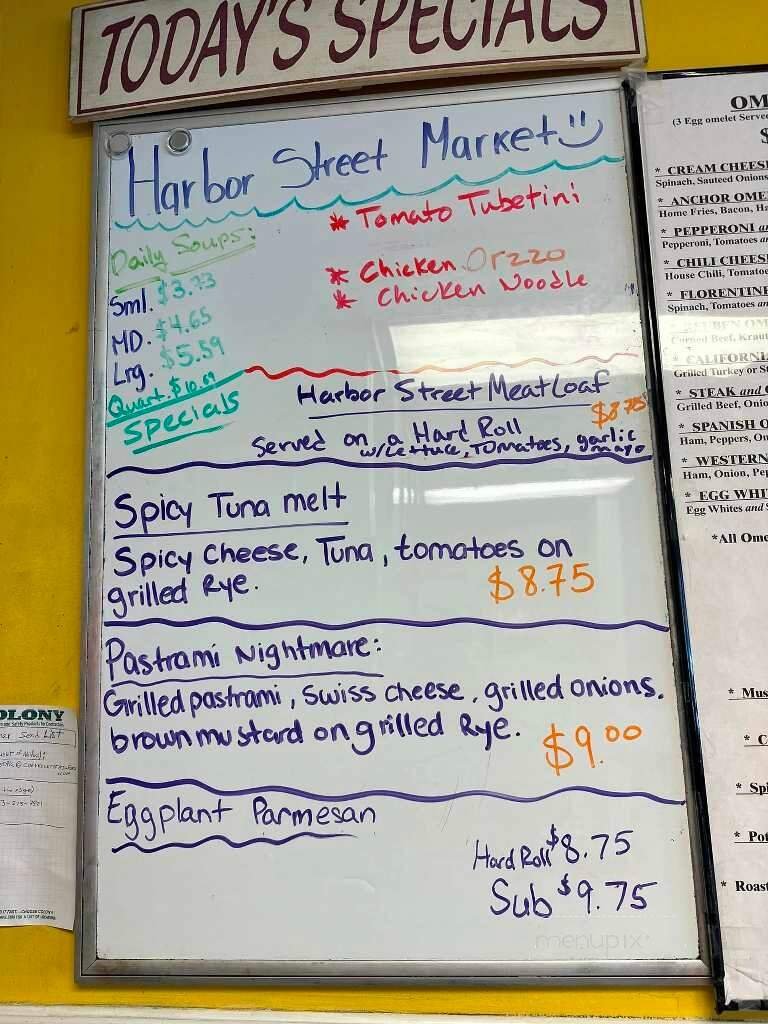 TODAY'S SPECIALS
Harbor Street Market
Daily Soups:
* Tomato Tubetini
* Chicken Orzzo
* Chicken Noodle
Sml. $3.73
MD. $4.65
Lrg. $5.59
Quart.
Specials
Harbor Street Meatloaf
$8.75
Served on a Hard Roll
w/Lettuce, Tomatoes, garlic
mayo
Spicy Tuna melt
Spicy Cheese, Tuna, tomatoes on
grilled Rye.
$8.75
Pastrami Nightmare:
Grilled pastrami, Swiss cheese, grilled onions.
brown mustard on grilled Rye.
$9.00
Eggplant Parmesan
Hard Roll $8.75
Sub $9.75
menupix
OM
(3 Egg omelet Serve
$
* CREAM CHEES
Spinach, Sauteed Onions
* ANCHOR OME
Home Fries, Bacon, Ha
* PEPPERONI a
Pepperoni, Tomatoes a
* CHILI CHEES
House Chili, Tomato
* FLORENTIN
Spinach, Tomatoes an
EUBEN OM
Corned Beef, Kraut
* CALIFORNI
Grilled Turkey or S
* STEAK and
Grilled Beef, Onio
* SPANISH O
Ham, Peppers, On
* WESTERN
Ham, Onion, Pep
* EGG WHI
Egg Whites and
*All Ome
* Mus
* C
* Spi
* Pot
* Roast
OLONY